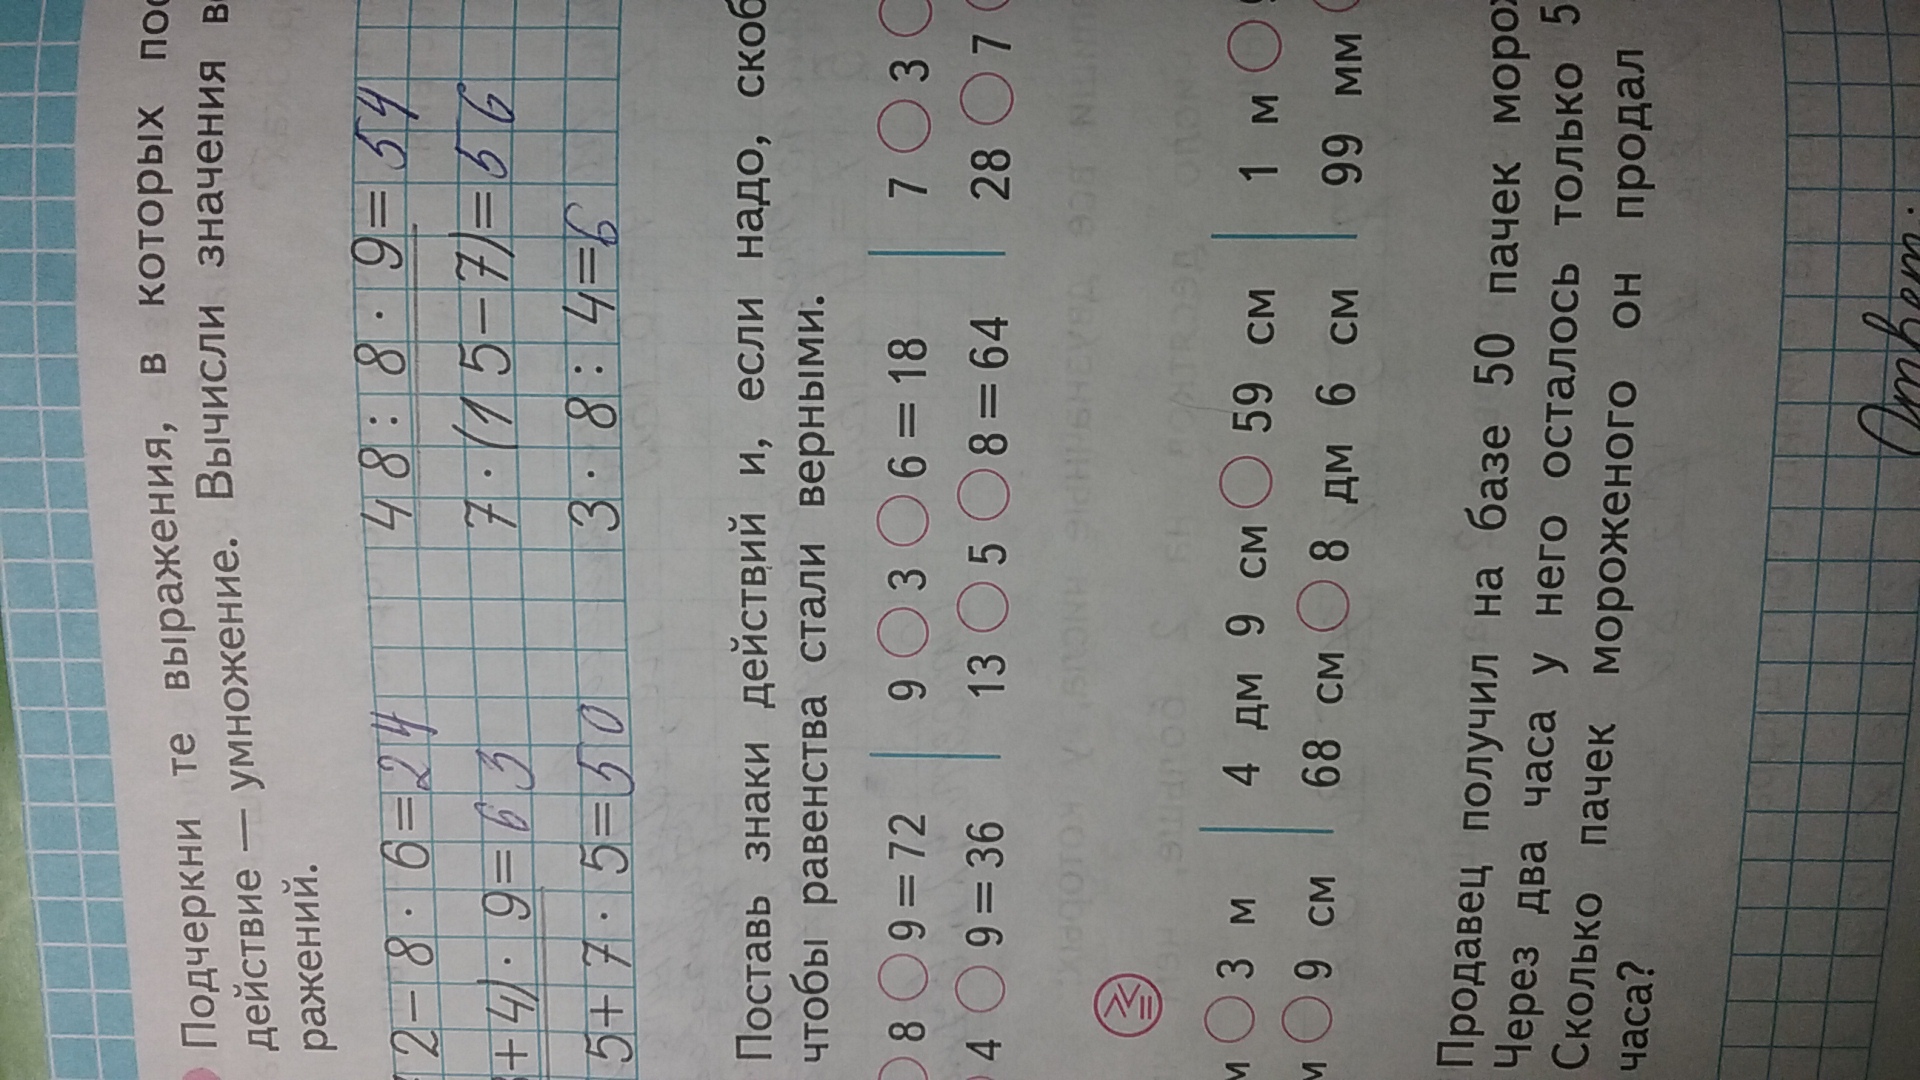 Подчеркни те выражения, в которых
действие — умножение. Вычисли значения
ражений.
2 − 8 · 6 = 24 48 : 8 · 9 = 54
+ 4) · 9 = 63 7 · (15 − 7) = 56
5 + 7 · 5 = 50 3 · 8 : 4 = 6
Поставь знаки действий и, если надо, скоб
чтобы равенства стали верными.
8 ○ 9 = 72 | 9 ○ 3 ○ 6 = 18 | 7 ○ 3 ○
4 ○ 9 = 36 | 13 ○ 5 ○ 8 = 64 | 28 ○ 7 ○
м ○ 3 м | 4 дм 9 см ○ 59 см | 1 м ○
м ○ 9 см | 68 см ○ 8 дм 6 см | 99 мм ○
Продавец получил на базе 50 пачек моро
Через два часа у него осталось только 5
Сколько пачек мороженого он продал
часа?
Ответ: